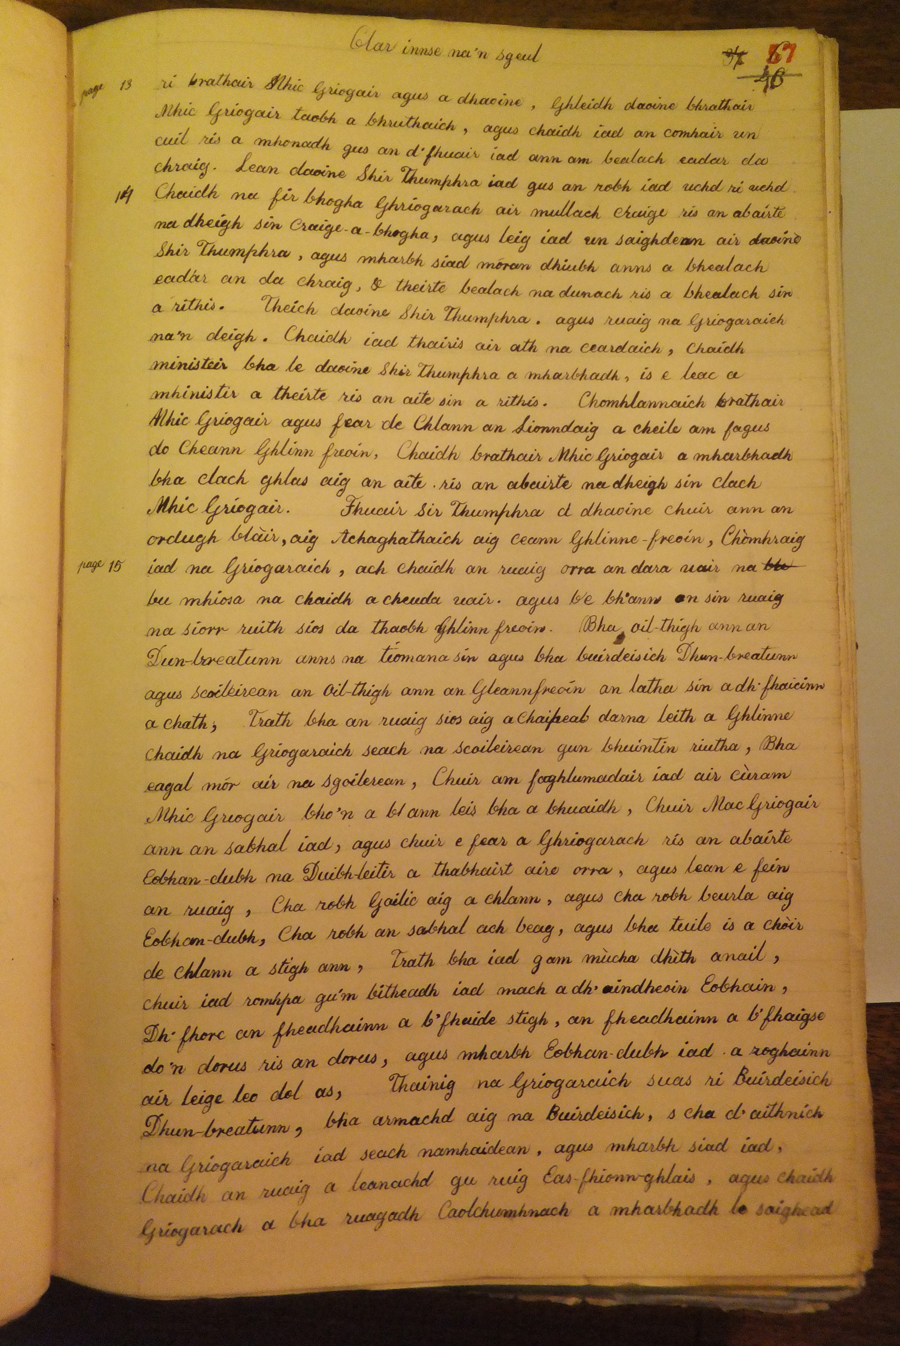 Clar innse na'n sgeul
37 67
43
page 13 ri brathair Mhic Griogair agus a dhaoine, Ghleidh daoine bhrathair
Mhic Griogair taobh a bhruthaich, agus chaidh iad an comhair un
cuil ris a mhonadh gus an d'fhuair iad ann am bealach eadar da
chraig. Lean daoine Shir Thumphra iad gus an robh iad uchd ri uchd.
14 Chaidh na fir bhogha Ghriogarach air mullach Craige ris an abairte
na dheigh sin Craige-a-bhogha, agus leig iad un saighdean air daoine
Shir Thumphra, agus mharbh siad móran dhiubh anns a bhealach
eadar an da chraig, & theirte bealach na dunach ris a bhealach sin
a rithis. Theich daoine Shir Thumphra. agus ruaig na Griogaraich
na'n deigh. Chaidh iad thairis air ath na ceardaich, Chaidh
ministeir bha le daoine Shir Thumphra a mharbhadh, is e leac a
mhinistir a theirte ris an aite sin a rithis. Chomhlannaich brathair
Mhic Griogair agus fear de Chlann an Lionndaig a cheile am fagus
do Cheann Ghlinn freoin, Chaidh brathair Mhic Griogair a mharbhadh
bha clach ghlas aig an aite. ris an abairte na dheigh sin clach
Mhic Griogair. Fhuair Sir Thumphra d dhaoine chuir ann an
ordugh blàir, aig Achaghathaich aig ceann Ghlinne-freoin, Chòmhraig
page 15 iad na Griogaraich, ach chaidh an ruaig orra an dara uair na
bu mhiosa na chaidh a cheuda uair. agus b'e bh'ann on sin ruaig
na siorr ruith sios da thaobh Ghlinn freoin. Bha oil-thigh ann an
Dun-breatunn anns na tiomana sin agus bha buirdeisich Dhun-breatunn
agus scoileirean an Oil-thigh ann an Gleannfreoin an latha sin a dh'fhaicinn
a chath, Trath bha an ruaig sios aig a Chaipeal darna leith a Ghlinne
chaidh na Griogaraich seach na scoileirean gun bhuintin riutha, Bha
eagal mór air na sgoilerean, Chuir am foghlumadair iad air cùram
Mhic Griogair bho'n a b'ann leis bha a bhuaidh, Chuir Mac Griogair
ann an sabhal iad, agus chuir e fear a Ghriogarach ris an abairte
Eobhan-dubh na Duibh-leitir a thabhairt aire orra, agus lean e fein
an ruaig, Cha robh Gailic aig a chlann, agus cha robh beurla aig
Eobhan-dubh, Cha robh an sabhal ach beag, agus bha tuile is a chòir
de chlann a stigh ann, Trath bha iad gam mùcha dhith anail,
chuir iad rompa gu'm bitheadh iad mach a dh'aindheoin Eobhain,
Dh'fhorc an fheadhainn a b'fhaide stigh, an fheadhainn a b'fhaigse
do'n dorus ris an dorus, agus mharbh Eobhan-dubh iad. a roghainn
air leige leo dol as, Thainig na Griogaraich suas ri Buirdeisich
Dhun-breatunn, bha armachd aig na Buirdeisich, s cha d'aithnich
na Griogaraich iad seach namhaidean, agus mharbh siad iad,
Chaidh an ruaig a leanachd gu ruig Eas-fhionn-ghlais, agus chaidh
Griogarach a bha ruagadh Caolchumhnach a mharbhadh le saighead